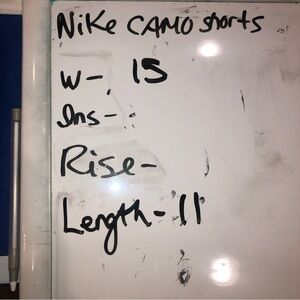 Nike CAMO shorts
W-. 15
Ins-:
Rise-
Length-11